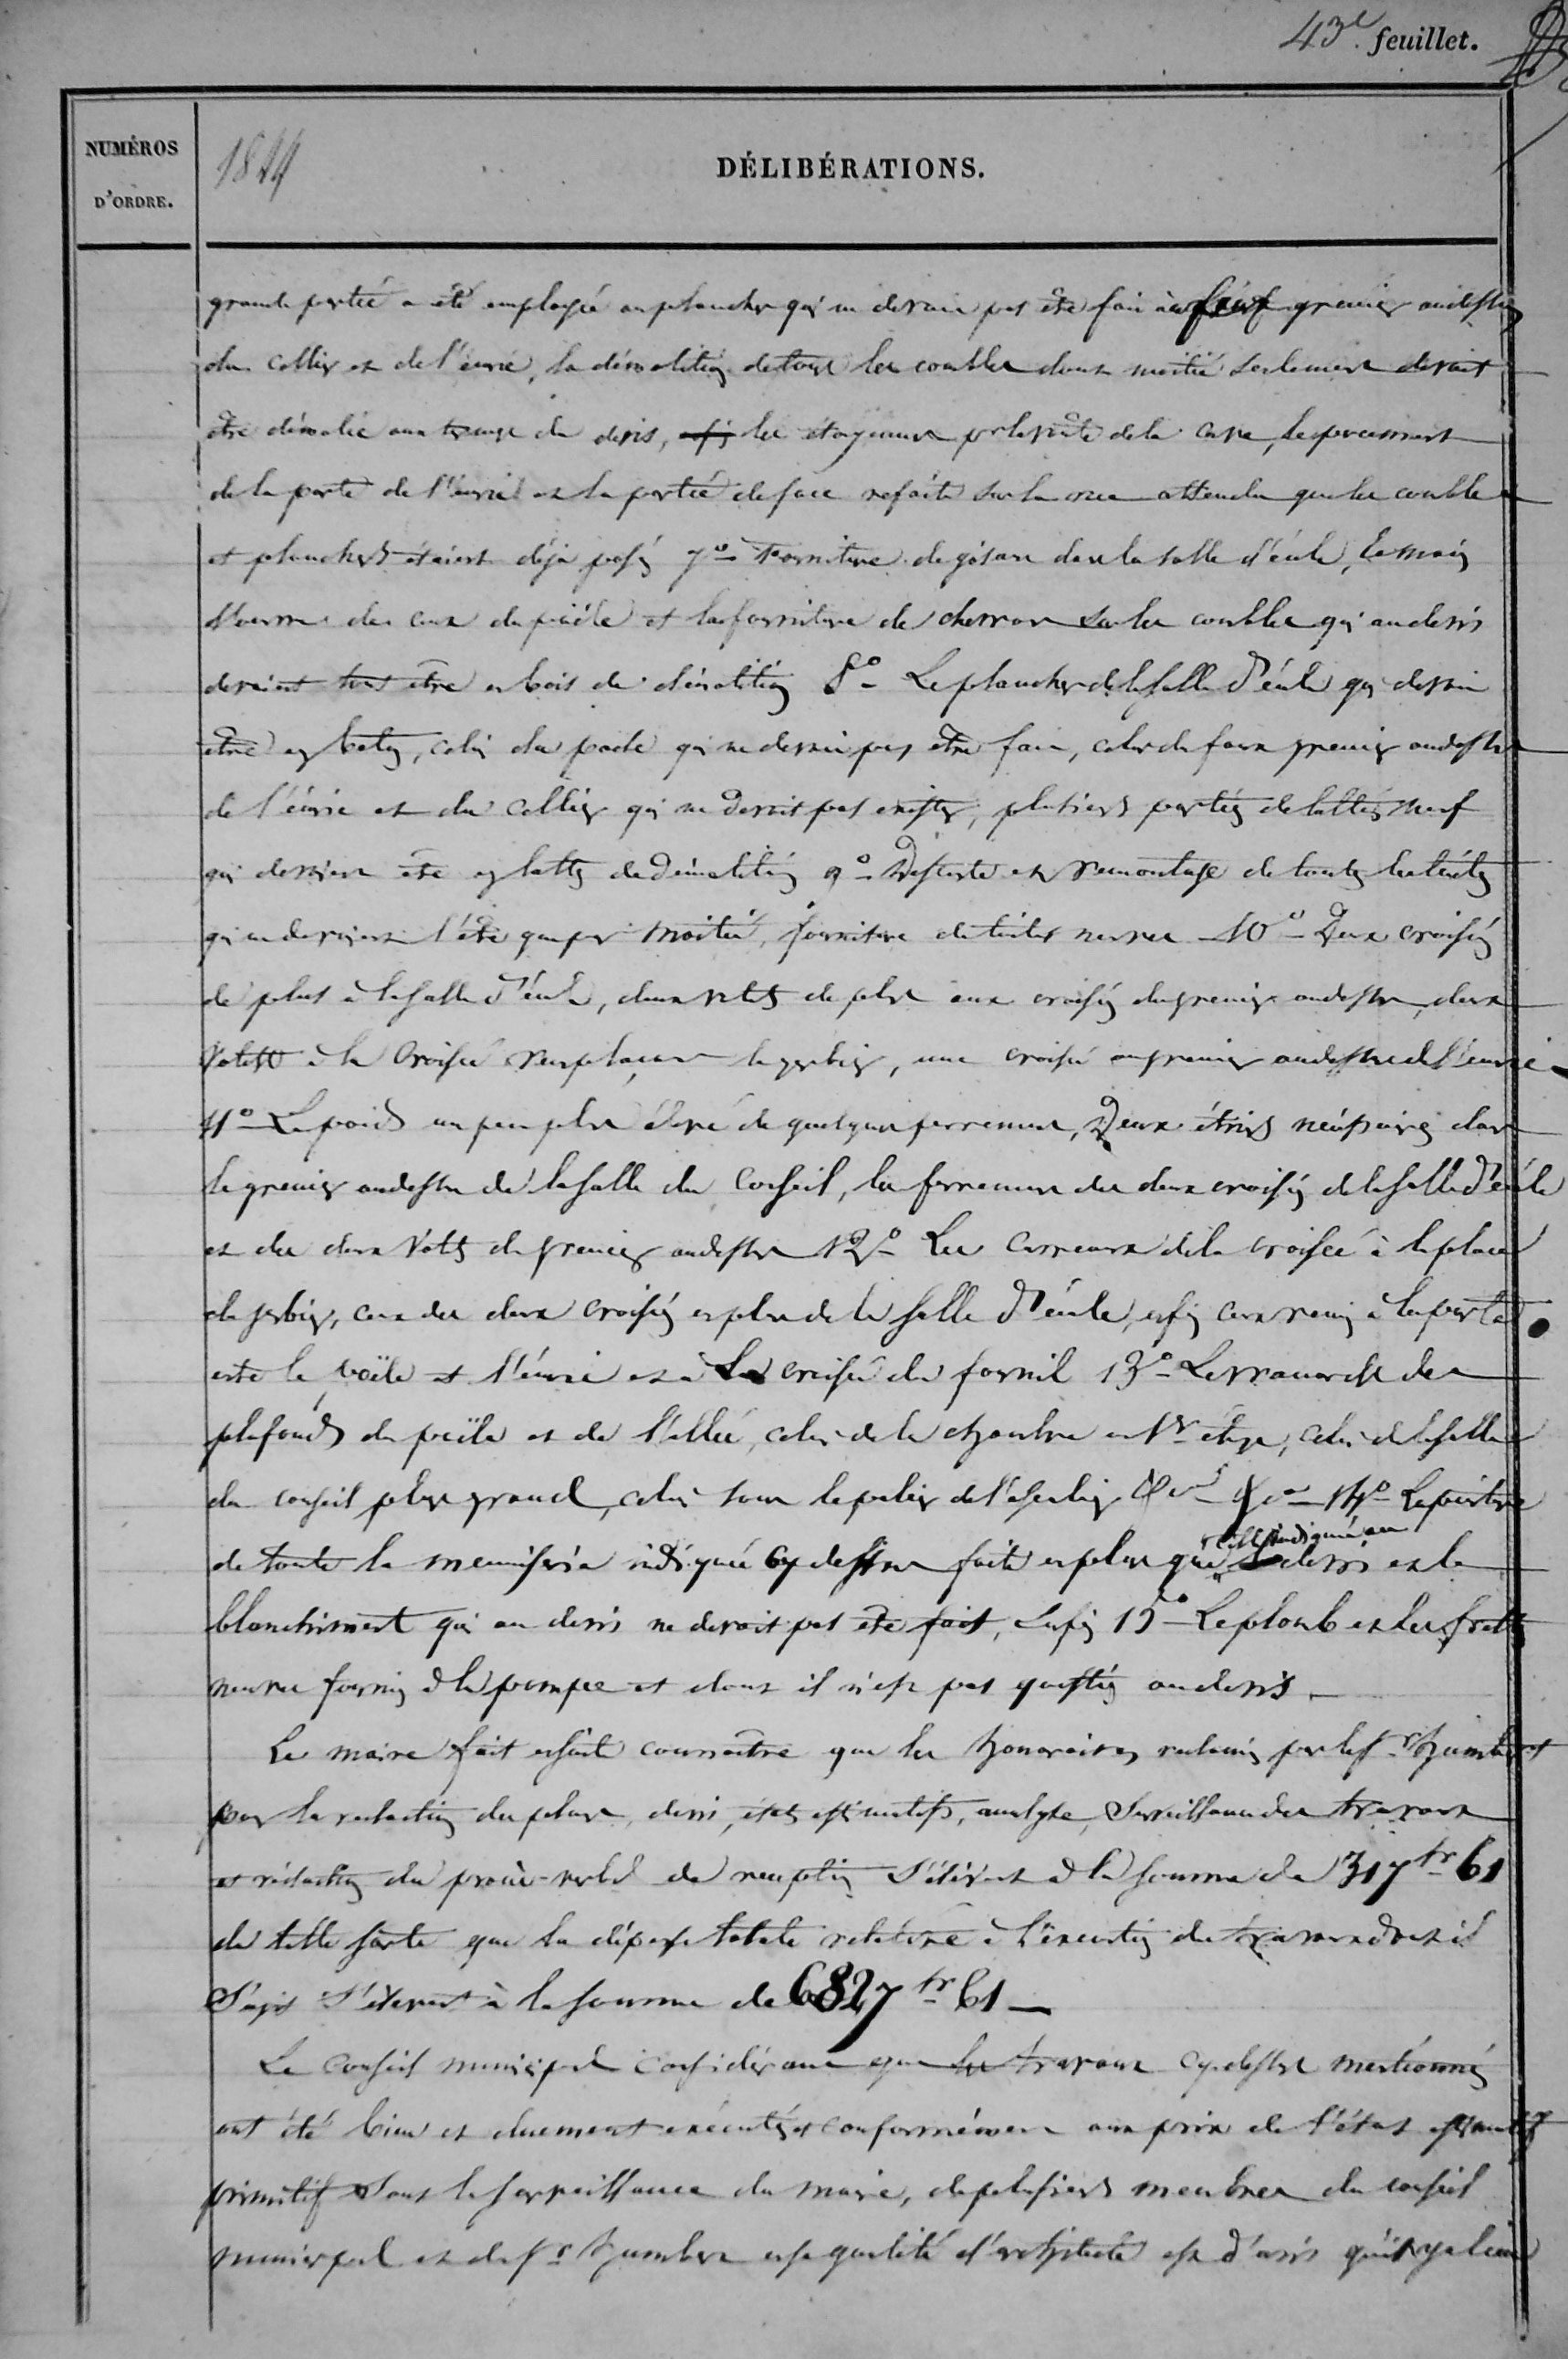 43e. feuillet.
NUMÉROS
D'ORDRE.
1844
DÉLIBÉRATIONS.
grande partie a été employée au plancher qui ne devait pas être fait au faux grenier au dessus
du cellier et de l'écurie, la démolition de tous les combles dont moitié seulement devait
être démolie aux termes du devis, les étayements pr la voûte de la cave, le percement
de la porte de l'écurie et la partie de face refaite sur la rue attendu que les combles
et planchers étaient déjà posés 7o- Fourniture de gitans dans la salle d'école, la main
d'œuvre de ceux du poële et la fourniture de chevrons sur les combles qui au devis
devaient tous être en bois de démolition 8o- Le plancher de la salle d'école qui devait
être en béton, celui du poele qui ne devait pas être fait, celui du faux grenier au dessus
de l'écurie et du cellier qui ne devait pas exister, plusieurs parties de lattis neuf
qui devaient être en lattes de démolition 9o- Descente et remontage de toutes les tuiles
qui ne devaient l'être que par moitié, fourniture de tuiles neuves 10o- Deux croisées
de plus à la salle d'école, deux volets de plus aux croisées du grenier au dessus, deux
volets à la croisée remplaçant le gerbier, une croisée au grenier au dessus de l'écurie
11o- Le poids un peu plus élevé de quelques ferrements, Deux étriers nécessaires dans
le grenier au dessus de la salle du Conseil, les ferrements des deux croisées de la salle d'école
et des deux volets du grenier au dessus 12o- Les carreaux de la croisée à la place
du gerbier, ceux des deux croisées en plus de la salle d'école, enfin ceux remis à la porte
entre le poële et l'écurie et à la croisée du fournil 13o- Le des
plafonds du poële et de l'allée, celui de la chambre au 1r étage, celui de la salle
du conseil plus grand, celui sous le palier de l'escalier &c &c 14o- La peinture
de toute la menuiserie indiquée cy dessus faite en plus que celle indiquée au devis et le
blanchiment qui au devis ne devait pas être fait, Enfin 15o- Le plomb et les frettes
neuves fournis à la pompe et dont il n'est pas question au devis.
Le maire fait ensuite connaître que les honoraires réclamés par le Sr Humbert
pour la rédaction des plans, devis, états estimatifs, analyse, surveillance des travaux
et rédaction du procès-verbal de réception s'élèvent à la somme de 317 fr 61
de telle sorte que la dépense totale relative à l'exécution des travaux dont il
s'agit s'élevent à la somme de 6827 fr 61 —
Le Conseil municipal considérant que les travaux cy dessus mentionnés
ont été bien et duement exécutés et conformément aux prix de l'état estimatif
primitif sous la surveillance du maire, de plusieurs membres du conseil
municipal et du Sr Humbert en sa qualité d'architecte est d'avis qu'il y a lieu